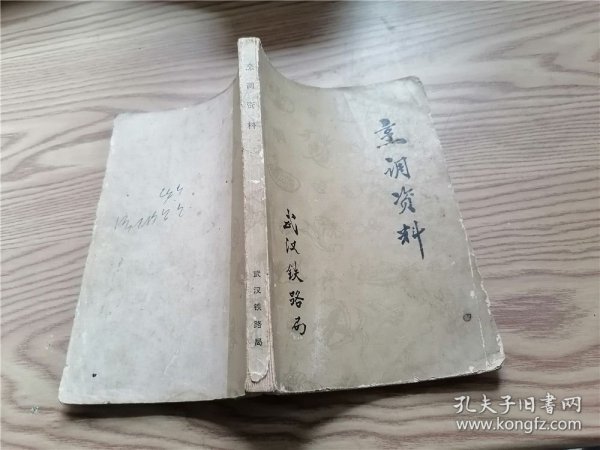 烹调资料
武汉铁路局
烹调资料
武汉铁路局
孔夫子旧书网
www.kongfz.com